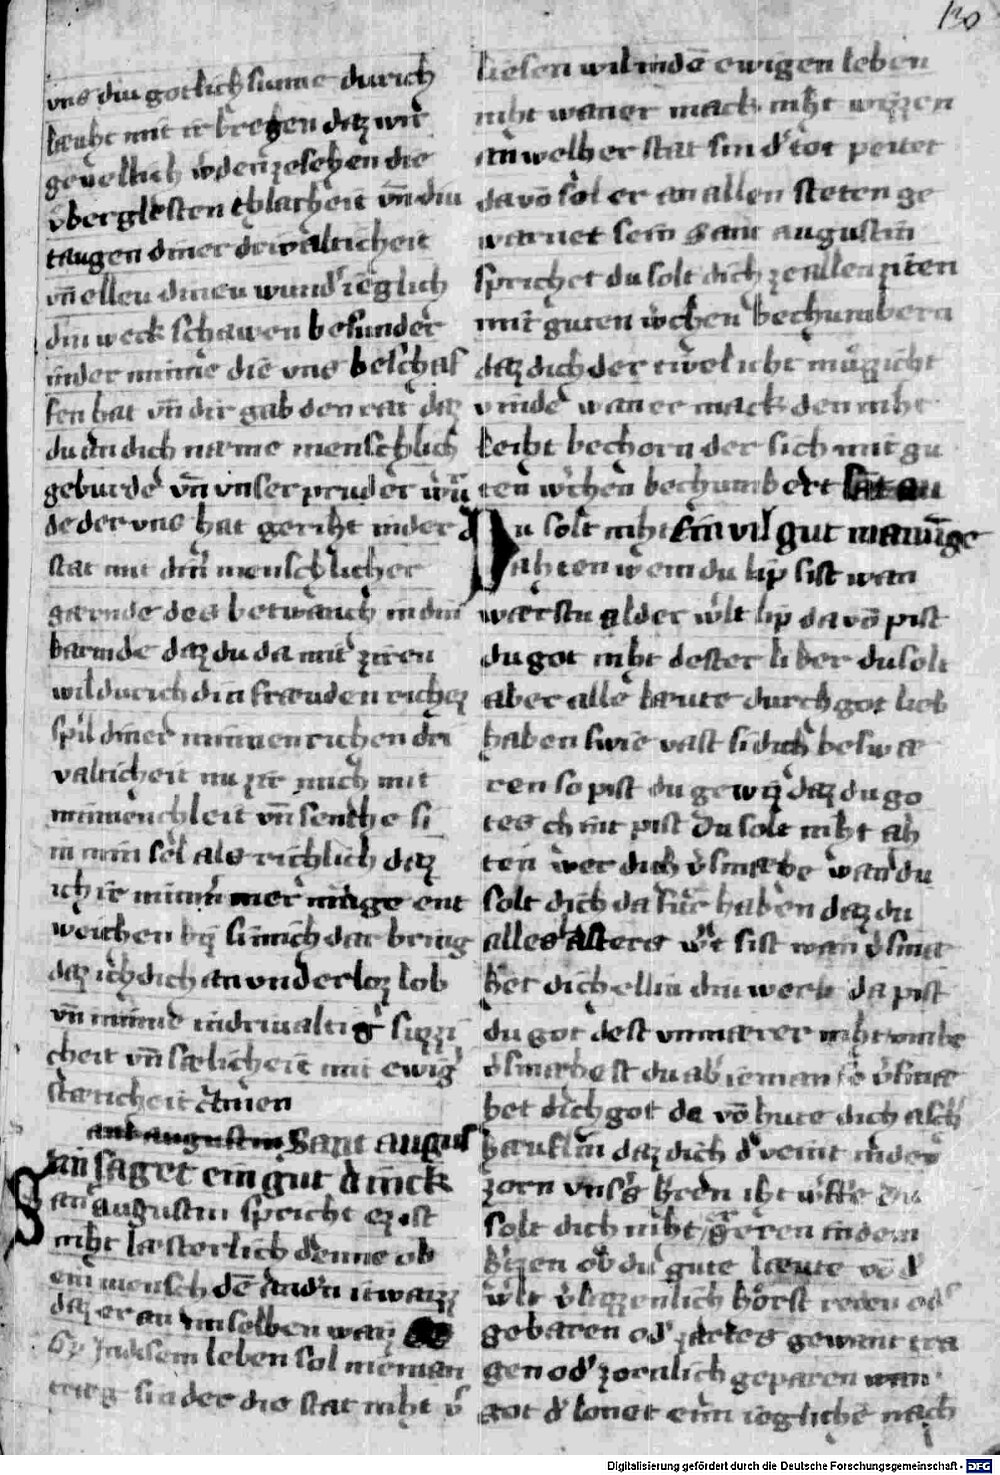 130
vns diu gotlich sunne durich
læuht mit ir brehen daz wir
geuellich w̓den ze sehen die
v̓berglesten chlarheit vn̄ diu
taugen diner driualticheit
vn̄ elleu dineu wund̓ ieglich
din werk schawen besunder
in der minne die vns beschaf
fen hat vn̄ dir gab den rat daz
du an dich næme menschlich
geburde vn̄ vnser pruder
de der vns hat geriht in der
stat mit din̄ menschlicher
gærnde des betwanch in din
barmde daz du da mit ziren
wil durich din fræuden richez
spil diner minnen richen dri
valticheit nu zir mich mit
minnenchleit vn̄ senche si
in min sel als richlich daz
ich ir nimm̄ mer müge ent
weichen biz si mich dar bring
daz ich dich an vnderloz lob
vn̄ minne in driualtig̓
cheit vn̄ sælicheit mit ewig̓
stæticheit Amen
sant augustin Sant augus
tin saget ein gut dinck
San augustin spricht ez ist
niht læsterlich denne ob
ein mensch dē and̓n itwaizz
daz er an im selben waiz
In disem leben sol nieman
sin der die stat niht v̓
liesen wil in dē ewigen leben
niht waner mack niht wizzen
an welher stat sin d̓ tot peitet
da vō sol er an allen steten ge
warnet sein sant augustin
sprichet du solt dich ze allen ziten
mit guten w̓chen bechumbern
daz dich der tivel iht müzzicht
vinde wan er mack den niht
leiht bechorn der sich mit gu
ten w̓chen bechumbert
Du solt niht ein vil gut mainūge
ahten wem du lip sist wan
wærstu al der w̓lt lip da vō pist
du got niht dester liber du solt
aber alle læute durch got lieb
haben swie vast si dich beswæ
ren so pist du gewiz daz du go
tes chint pist Du solt niht ah
ten wer dich v̓smæhe wan du
solt dich da für haben daz du
alles lasters w̓t sist wan v̓smæ
het dich elliu diu werlt da pist
du got dest vnmærer niht vmbe
v̓smæhest du ab̓ ieman so v̓smæ
het dich got da vō hute dich
daz dich d̓ veint in der
zorn vns̓s h̓ren iht w̓ffe Du
solt dich niht ergeren in dem
h̓zen ob du gute læute vō d̓
w̓lt v̓lazzenlich hörst reden od̓
gebaren od̓ zartes gewant tra
gen od̓ zornlich geparen wan
got d̓ lonet eim ieglichē nach